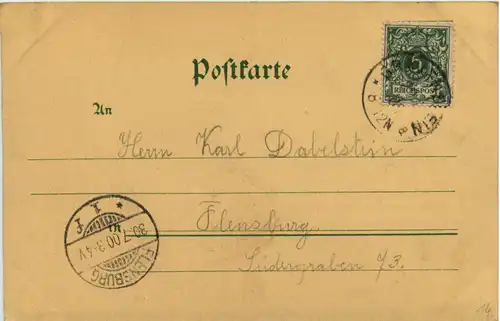 Postkarte
5
REICHSPOST
An
Herrn Karl Dabelstein
in
Flensburg.
Südergraben 73.
FLENSBURG
30.7.00.3-4V
* 1 f
14.